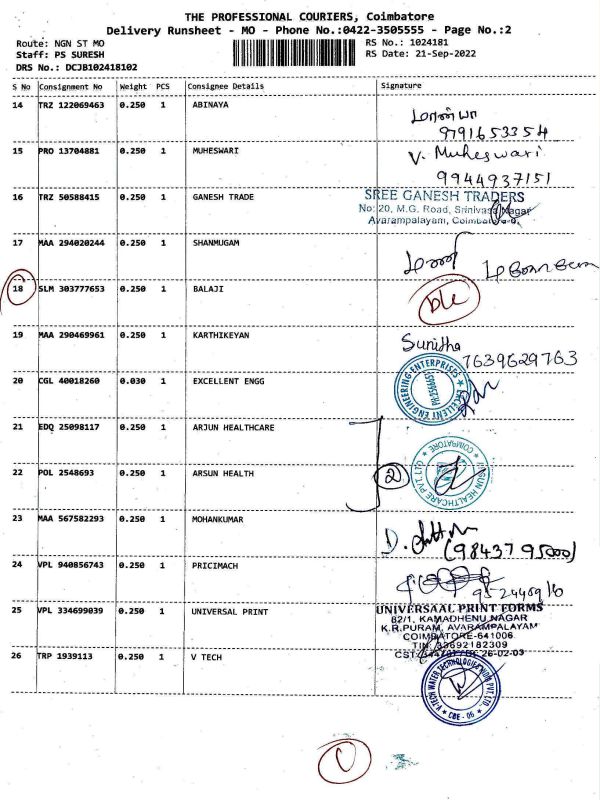 THE PROFESSIONAL COURIERS, Coimbatore
Delivery Runsheet - MO - Phone No.:0422-3505555 - Page No.:2
Route: NGN ST MO
RS No.: 1024181
Staff: PS SURESH
RS Date: 21-Sep-2022
DRS No.: DCJB102418102
S No Consignment No Weight PCS Consignee Details Signature
14 TRZ 122069463 0.250 1 ABINAYA
9791653354
15 PRO 13704881 0.250 1 MUHESWARI V. Muheswari
9944937151
16 TRZ 50588415 0.250 1 GANESH TRADE SREE GANESH TRADERS
No: 20, M.G. Road, Srinivasa Nagar
Avarampalayam,
17 MAA 294020244 0.250 1 SHANMUGAM
18 SLM 303777653 0.250 1 BALAJI
19 MAA 290469961 0.250 1 KARTHIKEYAN Sunitha
7639629763
20 CGL 40018260 0.030 1 EXCELLENT ENGG EXCELLENT ENGINEERING ENTERPRISES
21 EDQ 25098117 0.250 1 ARJUN HEALTHCARE
22 POL 2548693 0.250 1 ARSUN HEALTH 2
HEALTHCARE PVT.LTD COIMBATORE
23 MAA 567582293 0.250 1 MOHANKUMAR
24 VPL 940856743 0.250 1 PRICIMACH
25 VPL 334699039 0.250 1 UNIVERSAL PRINT UNIVERSAAL PRINT FORMS
82/1, KAMADHENU NAGAR
K.R.PURAM, AVARAMPALAYAM
COIMBATORE-641006
TIN: 33692182309
26 TRP 1939113 0.250 1 V TECH V-TECH WATER TECHNOLOGIES INDIA PVT. LTD.
CBE - 06